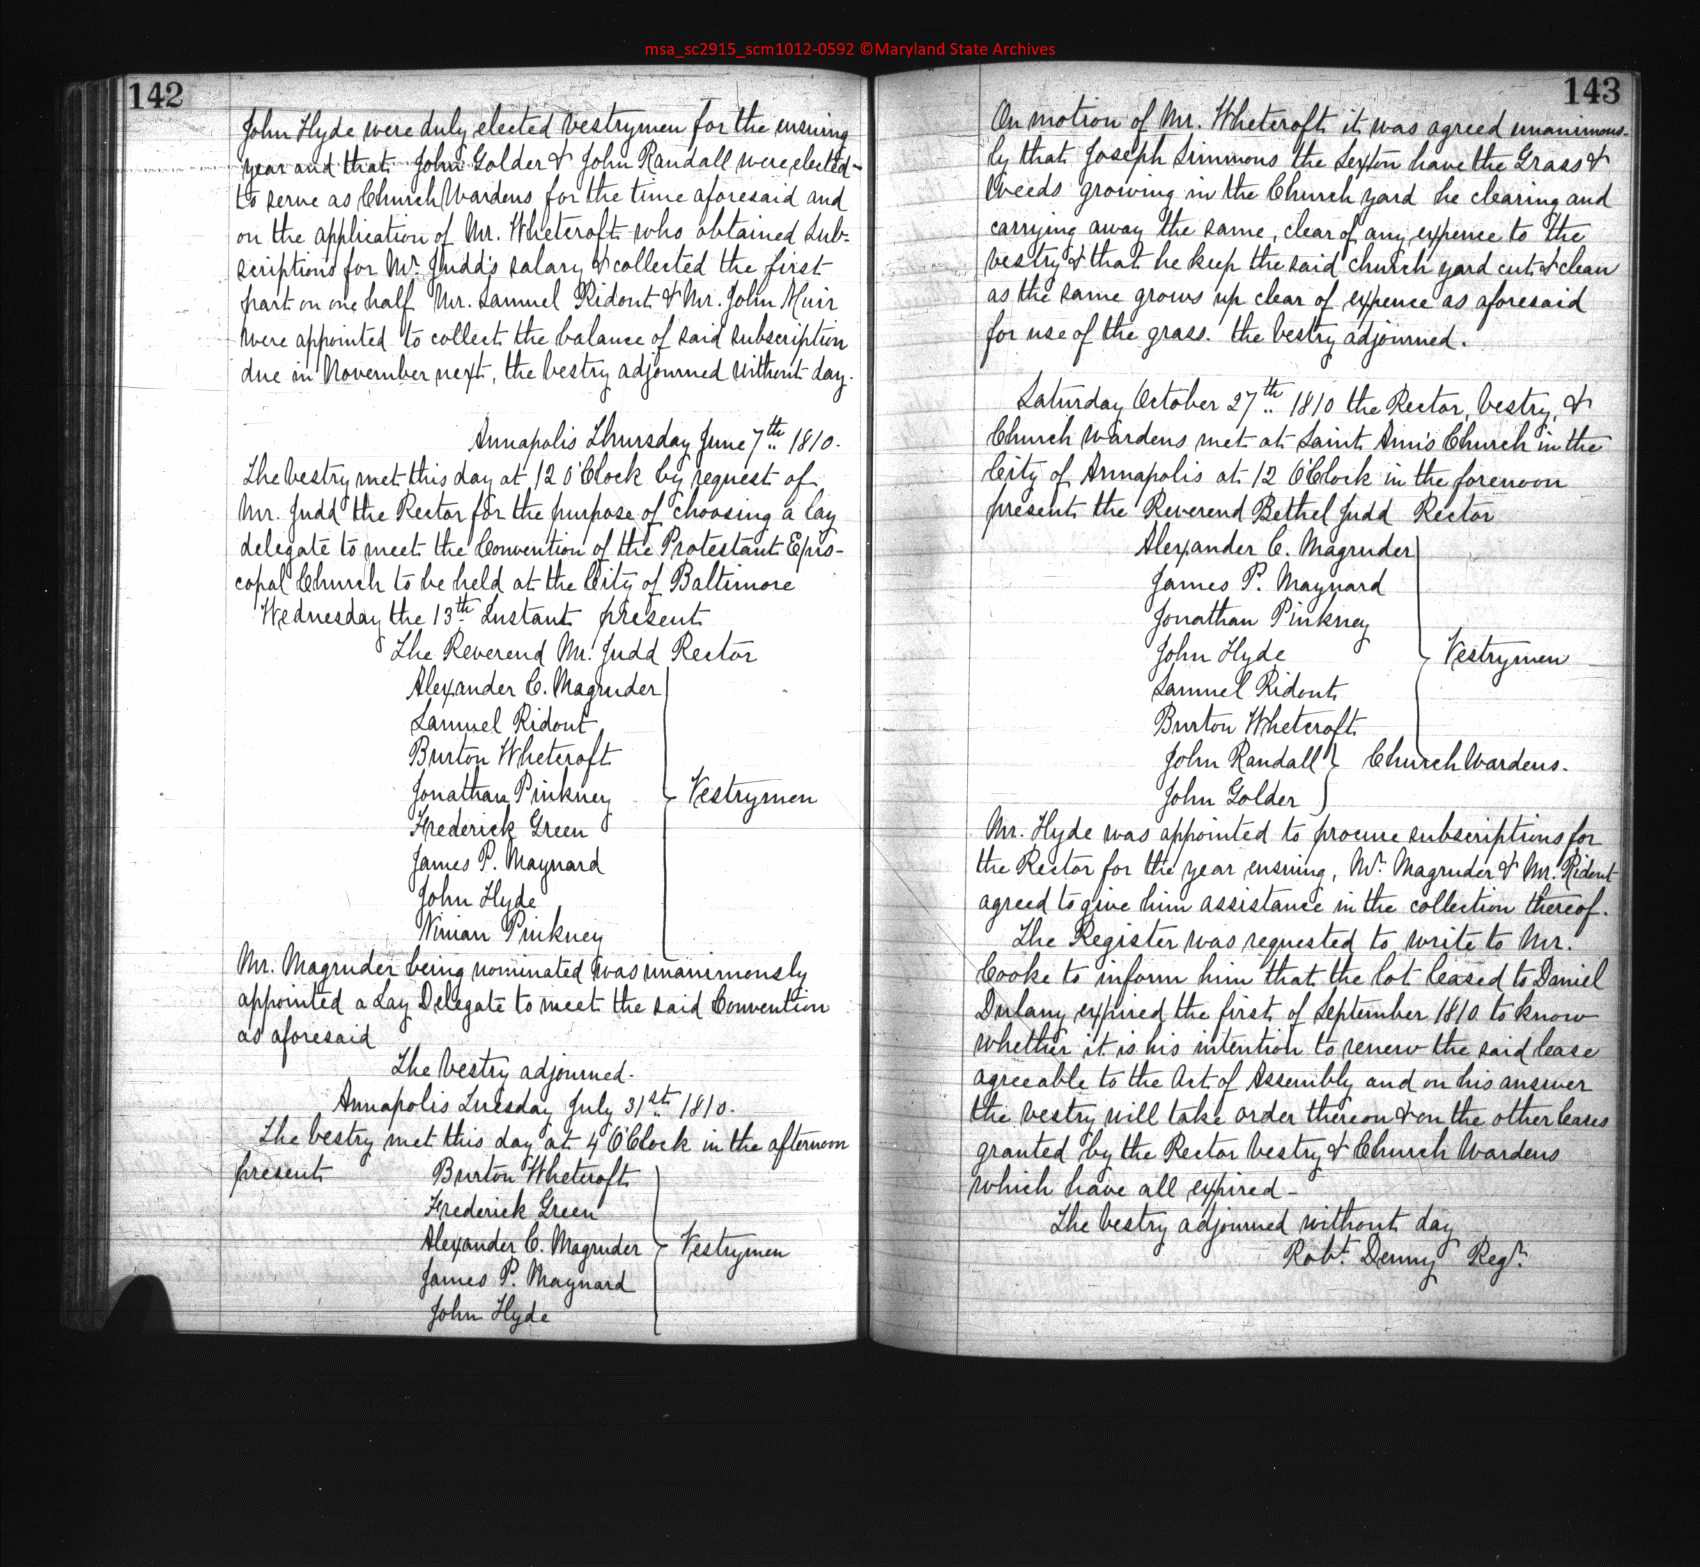 msa_sc2915_scm1012-0592 ©Maryland State Archives
142
John Hyde were duly elected vestrymen for the ensuing
year and that John Golder & John Randall were elected
to serve as Church Wardens for the time aforesaid and
on the application of Mr. Whetcroft who obtained sub=
scriptions for Mr. Judd's salary & collected the first
part on one half Mr. Samuel Ridout & Mr. John Muir
were appointed to collect the balance of said subscription
due in November next, the vestry adjourned without day.
Annapolis Thursday June 7th 1810.
The vestry met this day at 12 O'Clock by request of
Mr. Judd the Rector for the purpose of choosing a lay
delegate to meet the Convention of the Protestant Epis-
copal Church to be held at the City of Baltimore
Wednesday the 13th Instant present
The Reverend Mr. Judd Rector
Alexander C. Magruder
Samuel Ridout
Burton Whetcroft
Jonathan Pinkney
Vestrymen
Frederick Green
James P. Maynard
John Hyde
Ninian Pinkney
Mr. Magruder being nominated was unanimously
appointed a Lay Delegate to meet the said Convention
as aforesaid
The vestry adjourned.
Annapolis Tuesday July 31st 1810.
The vestry met this day at 4 O'Clock in the afternoon
present Burton Whetcroft
Frederick Green
Alexander C. Magruder Vestrymen
James P. Maynard
John Hyde
143
On motion of Mr. Whetcroft it was agreed unanimous-
ly that Joseph Simmons the Sexton have the Grass &
Weeds growing in the Church yard he clearing and
carrying away the same, clear of any expence to the
vestry & that he keep the said church yard cut & clean
as the same grows up clear of expence as aforesaid
for use of the grass. the vestry adjourned.
Saturday October 27th 1810 the Rector, Vestry, &
Church Wardens met at Saint Ann's Church in the
City of Annapolis at 12 O'Clock in the forenoon
present the Reverend Bethel Judd Rector
Alexander C. Magruder
James P. Maynard
Jonathan Pinkney
John Hyde
Vestrymen
Samuel Ridout
Burton Whetcroft
John Randall Church Wardens.
John Golder
Mr. Hyde was appointed to procure subscriptions for
the Rector for the year ensuing, Mr. Magruder & Mr. Ridout
agreed to give him assistance in the collection thereof.
The Register was requested to write to Mr.
Cooke to inform him that the lot leased to Daniel
Dulany expired the first of September 1810 to know
whether it is his intention to renew the said lease
agreeable to the Act of Assembly and on his answer
the vestry will take order thereon & on the other leases
granted by the Rector Vestry & Church Wardens
which have all expired-
The vestry adjourned without day
Robt. Denny Regr.